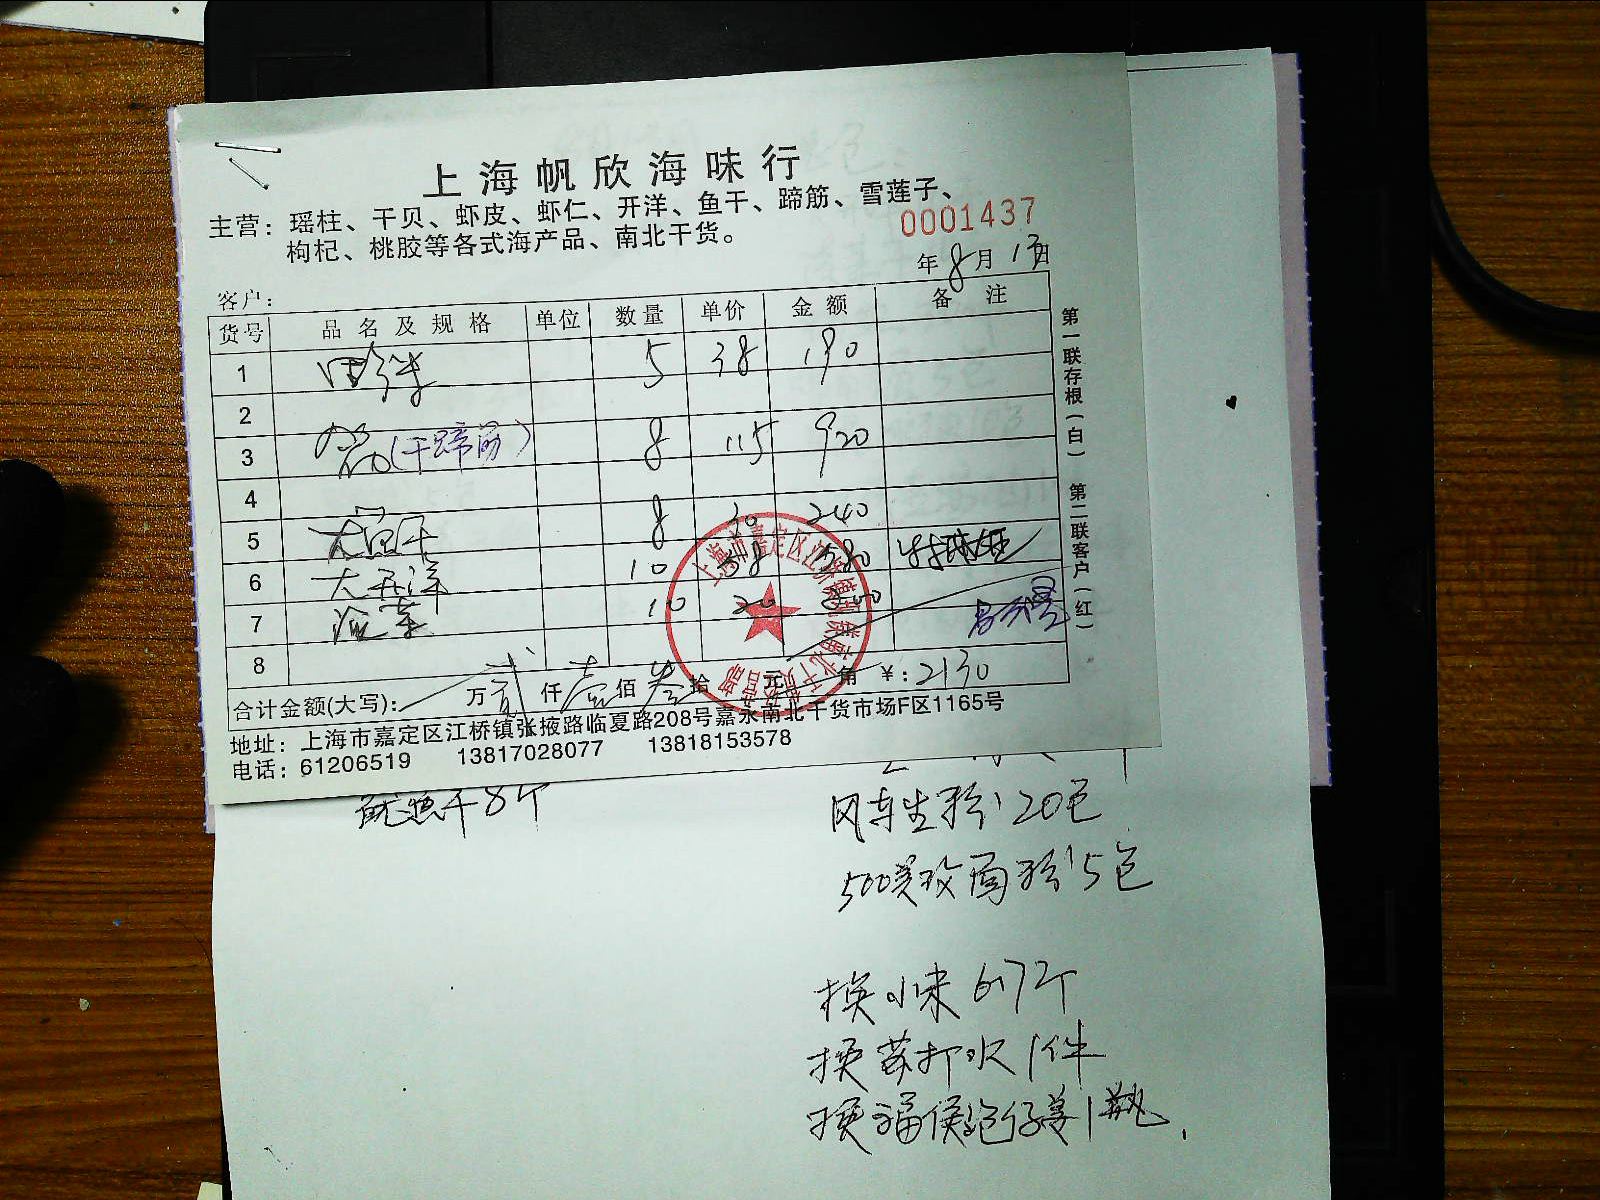 上海帆欣海味行
主营：瑶柱、干贝、虾皮、虾仁、开洋、鱼干、蹄筋、雪莲子、
枸杞、桃胶等各式海产品、南北干货。
0001437
年8月13日
客户：
货号 品名及规格 单位 数量 单价 金额 备注
1 5 38 190
2
3 (干蹄筋) 8 115 920
4
5 大鱼干 8 30 240
6 大开洋 10 58 580
7 10 20 200
8
合计金额(大写)： 万贰仟壹佰叁拾 元 角 ￥：2130
地址：上海市嘉定区江桥镇张掖路临夏路208号嘉永南北干货市场F区1165号
电话：61206519 13817028077 13818153578
第一联存根(白) 第二联客户(红)
鱿鱼干8个
风车生粉20包
500美玫面粉5包
换小米6个
换苏打水1件
换 1瓶